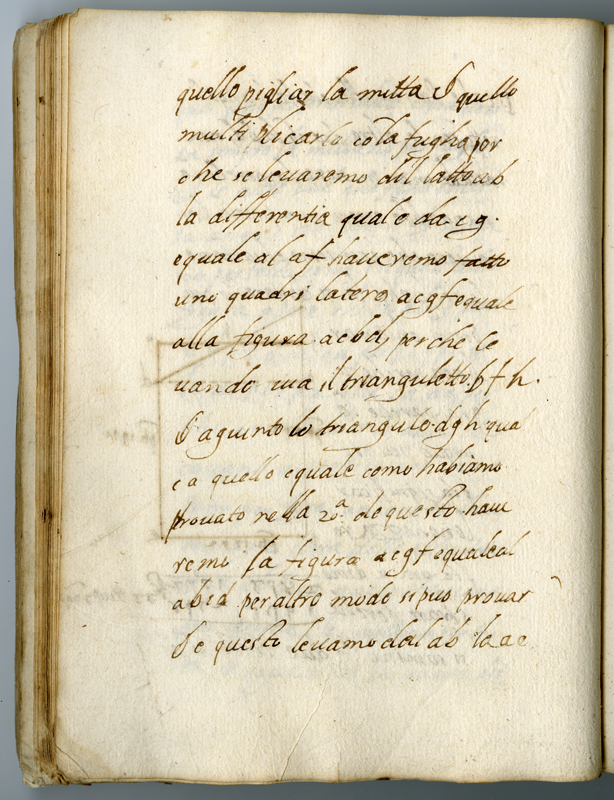 quello pigliar la mitta & quello
multiplicarlo cõ la fugha por
che se levaremo dil latto ab
la differentia qual e da c g.
equale al af haveremo fatto
uno quadri latero a c g f equale
alla figura a c b d, perche le
vando via il trianguletto b f h.
& agiunto lo triangulo d g h qual
e a quello equale como habiamo
provato nella 20.a de questo have
remo la figura a c g f equale al
a b c d per altro modo si puo provar
& e questo levamo dal ab la a e